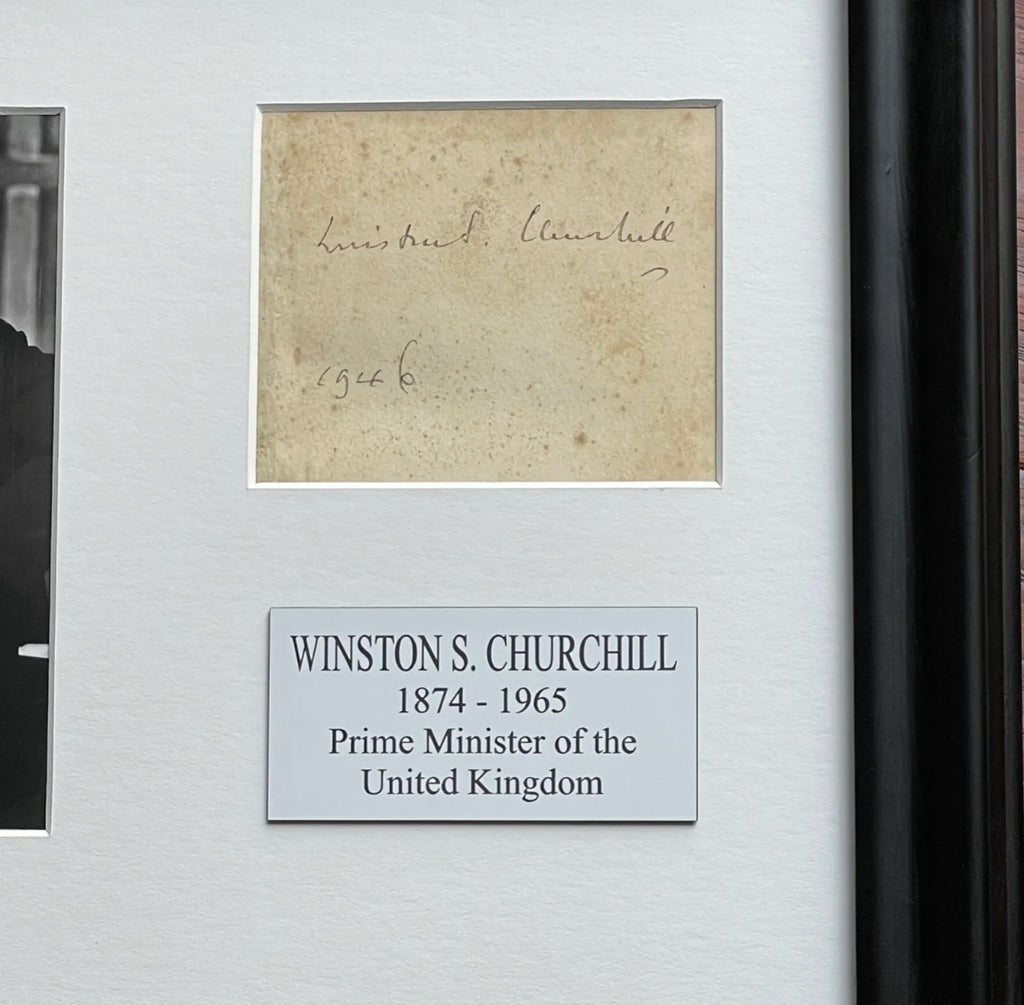 Winston S. Churchill
1946
WINSTON S. CHURCHILL
1874 - 1965
Prime Minister of the
United Kingdom